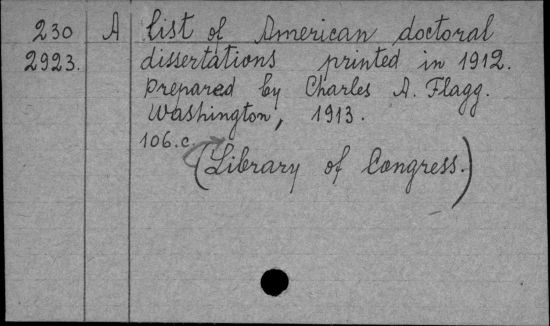 230 A list of American doctoral
2923. dissertations printed in 1912.
Prepared by Charles A. Flagg.
Washington, 1913.
106.c.
(Library of Congress.)